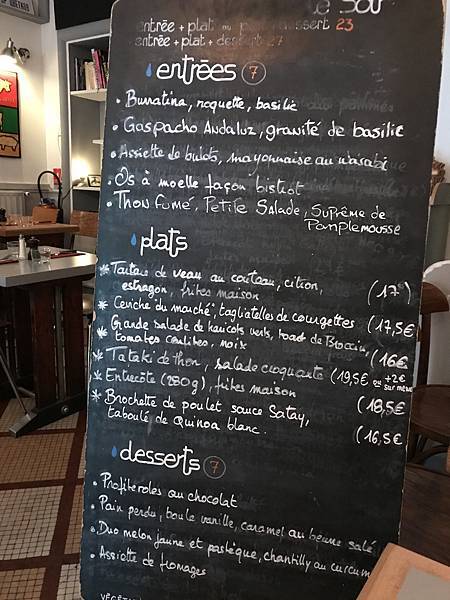 Le Soir
entrée + plat ou plat + dessert 23
entrée + plat + dessert 27
entrées 7
• Burratina, roquette, basilic
• Gaspacho Andaluz, granité de basilic
• Assiette de bulots, mayonnaise au wasabi
• Os à moelle façon bistrot
• Thon fumé, Petite Salade, Suprême de
Pamplemousse
plats
* Tartare de veau au couteau, citron,
estragon, frites maison (17€)
* Ceviche "du marché", tagliatelles de courgettes (17,5€
* Grande salade de haricots verts, toast de Brocciu,
tomates confites, noix (16€
* Tataki de thon, salade croquante (19,5€ ou +2€
sur menu
* Entrecôte (280g), frites maison (18,5€
* Brochette de poulet sauce Satay,
taboulé de Quinoa blanc. (16,5€
desserts 7
• Profiteroles au chocolat
• Pain perdu, boule vanille, caramel au beurre salé
• Duo melon jaune et pastèque, chantilly au curcuma
• Assiette de fromages